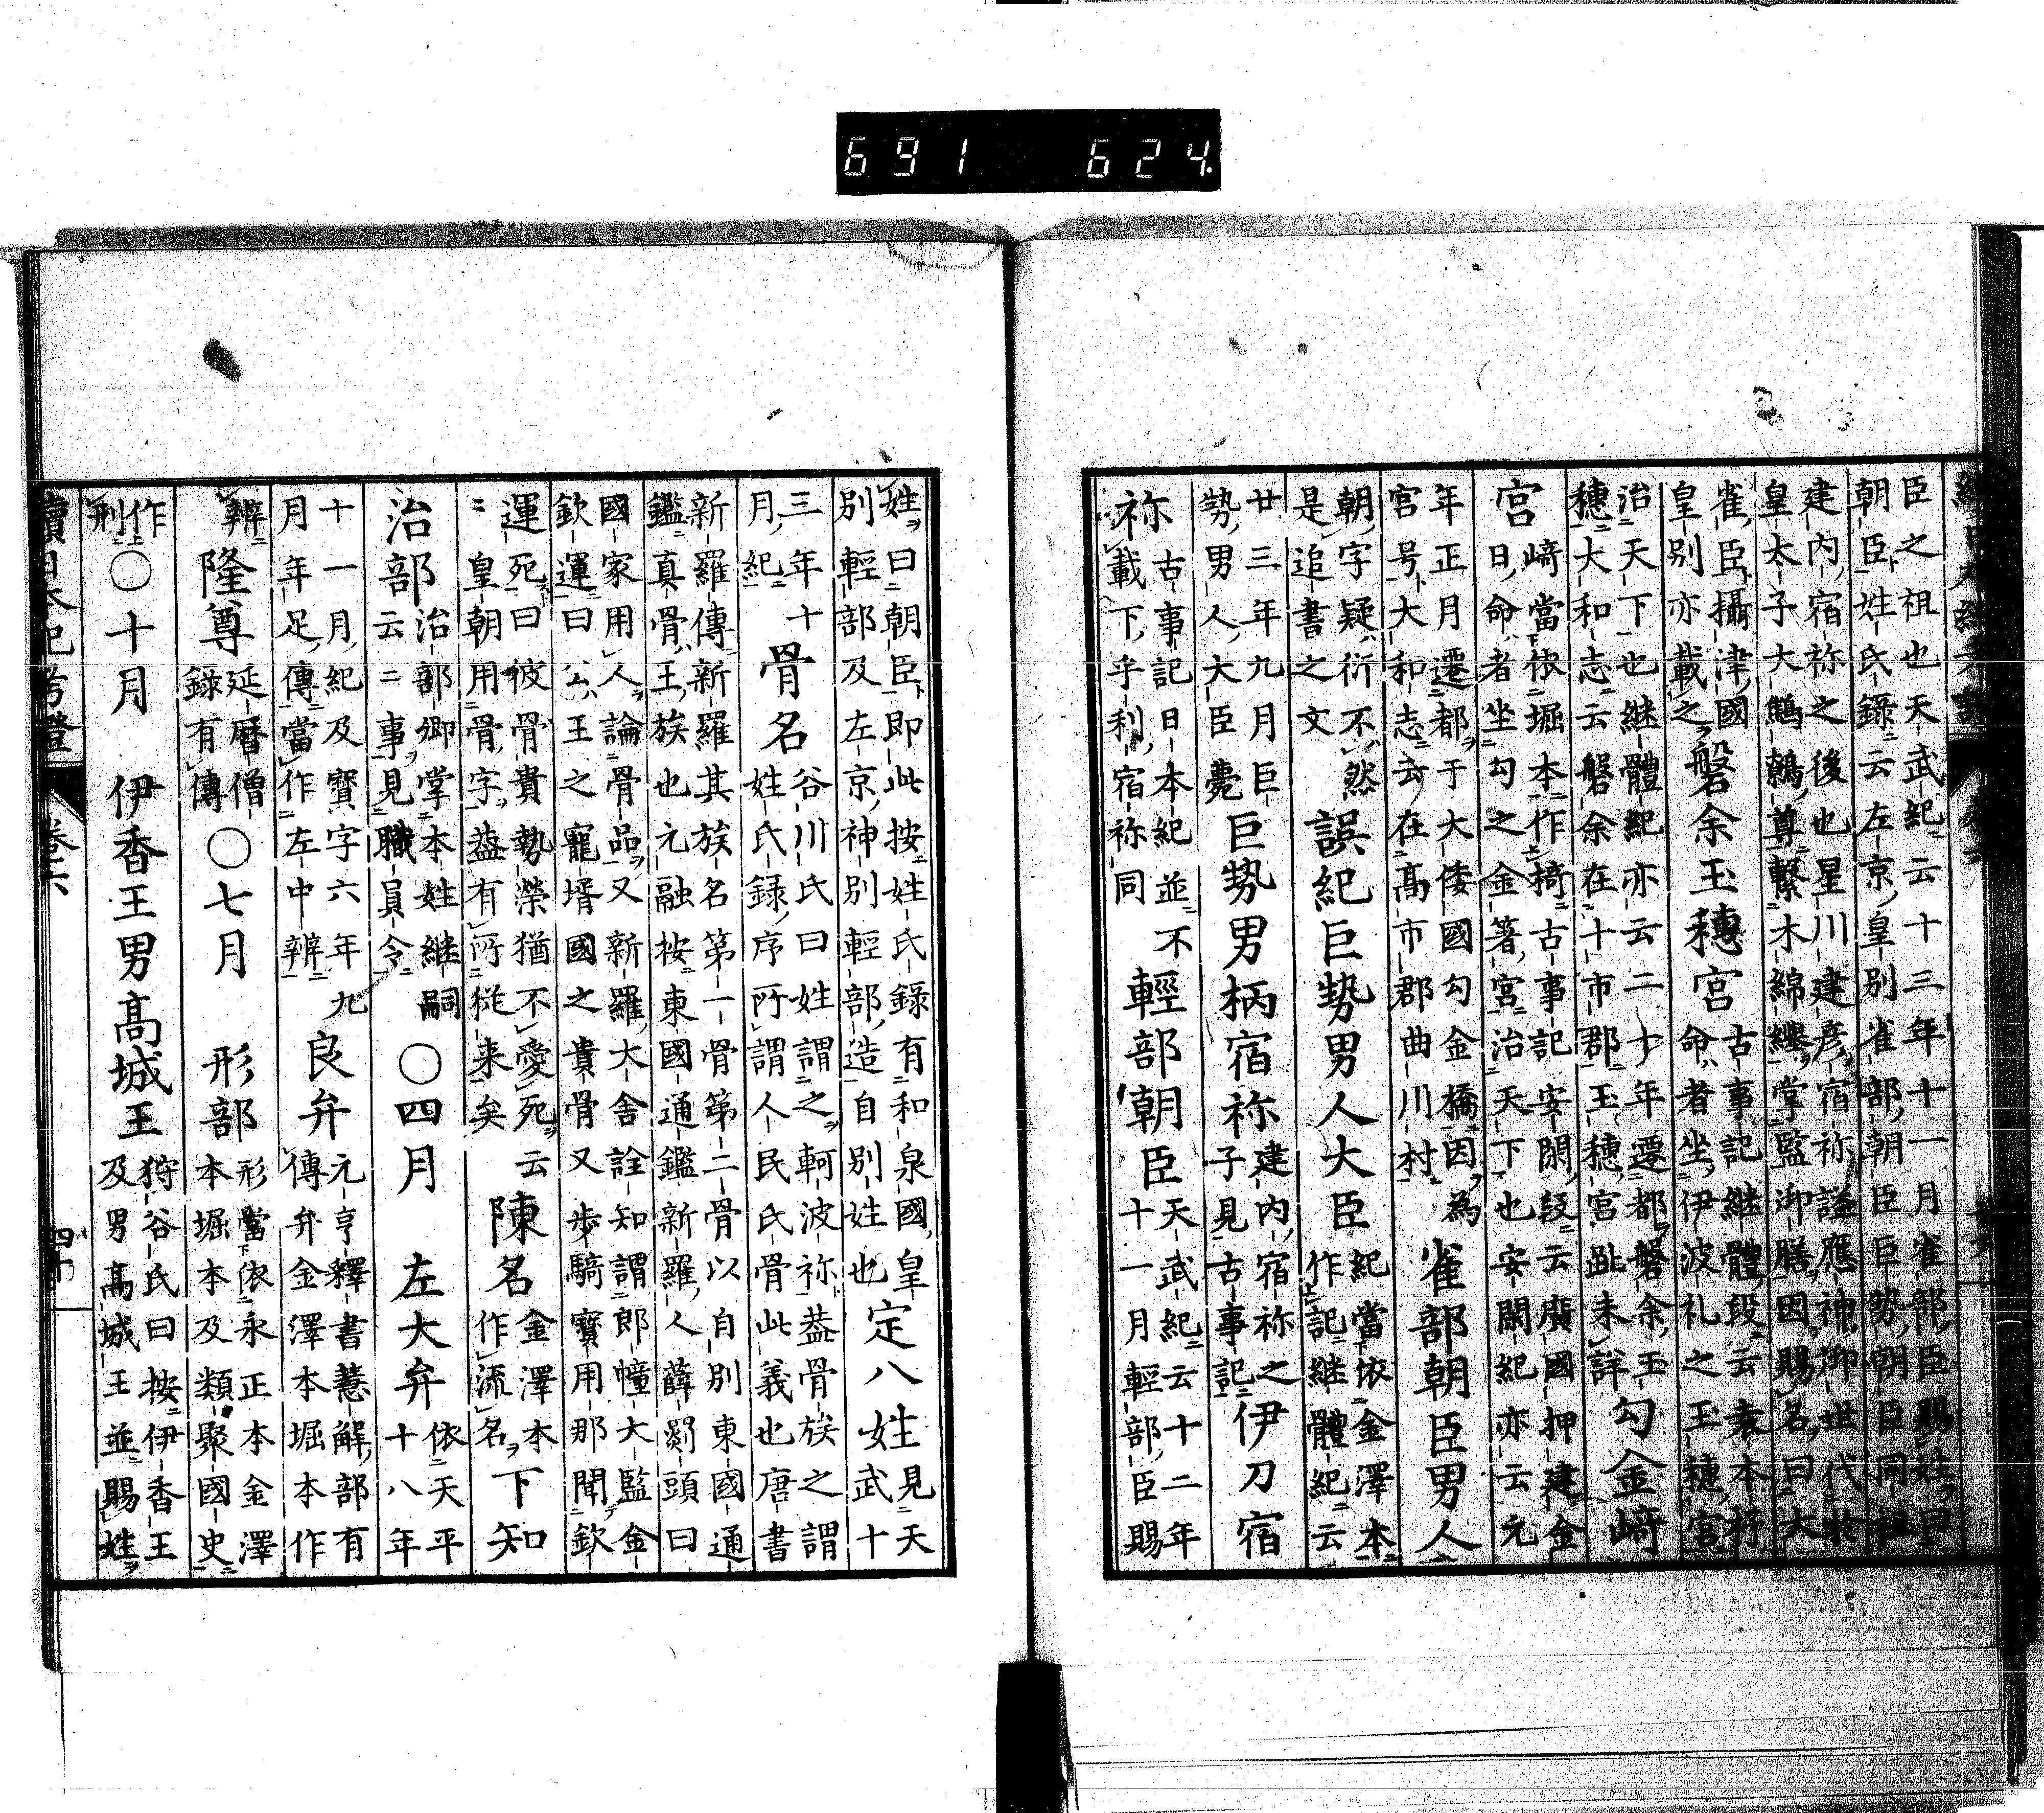 臣之祖也天武紀云十三年十一月雀部臣賜姓曰
朝臣姓氏錄云左京皇別雀部朝臣巨勢朝臣同祖
建内宿祢之後也星川建彦宿祢謚應神御世代於
皇太子大鷦鷯尊繫木綿襷掌監御膳因賜名曰大
雀臣攝津國
皇別亦載之
磐余玉穗宮
古事記継體段云袁本杼
命者坐伊波礼之玉穗宮
治天下也継體紀亦云二十年遷都磐余玉
穗大和志云磐余在十市郡玉穗宮趾未詳
勾金﨑
宮
﨑當依堀本作掎古事記安閑段云廣國押建金
日命者坐勾之金箸宮治天下也安閑紀亦云元
年正月遷都于大倭國勾金橋因為
宮号大和志云在髙市郡曲川村
雀部朝臣男人
朝字疑衍不然
是追書之文
誤紀巨勢男人大臣
紀當依金澤本
作記継體紀云
廿三年九月巨
勢男人大臣薨
巨勢男柄宿祢
建内宿祢之
子見古事記
伊刀宿
祢
古事記日本紀並不
載下乎利宿祢同
輕部朝臣
天武紀云十二年
十一月輕部臣賜
姓曰朝臣即此按姓氏錄有和泉國皇
別輕部及左京神別輕部造自別姓也
定八姓
見天
武十
三年十
月紀
骨名
谷川氏曰姓謂之軻波祢盖骨族之謂
姓氏録序所謂人民氏骨此義也唐書
新羅傳新羅其族名第一骨第二骨以自別東國通
鑑真骨王族也元融按東國通鑑新羅人薛罽頭曰
國家用人論骨品又新羅大舍詮知謂郎幢大監金
欽運曰公王之寵壻國之貴骨又步騎寶用那聞欽
運死曰彼骨貴勢榮猶不愛死云
二皇朝用骨字盖有所従来矣
陳名
金澤本
作流名
下知
治部
治部卿掌本姓継嗣
云二事見職員令
〇四月　左大弁
依天平
十八年
十一月紀及寶字六年九
月年足傳當作左中辨
良弁
元亨釋書慧解部有
傳弁金澤本堀本作
辨
隆尊
延曆僧
錄有傳
〇七月　形部
形當依永正本金澤
本堀本及類聚國史
作
刑
〇十月　伊香王男髙城王
狩谷氏曰按伊香王
及男髙城王並賜姓
續日本紀考證
卷六
四十